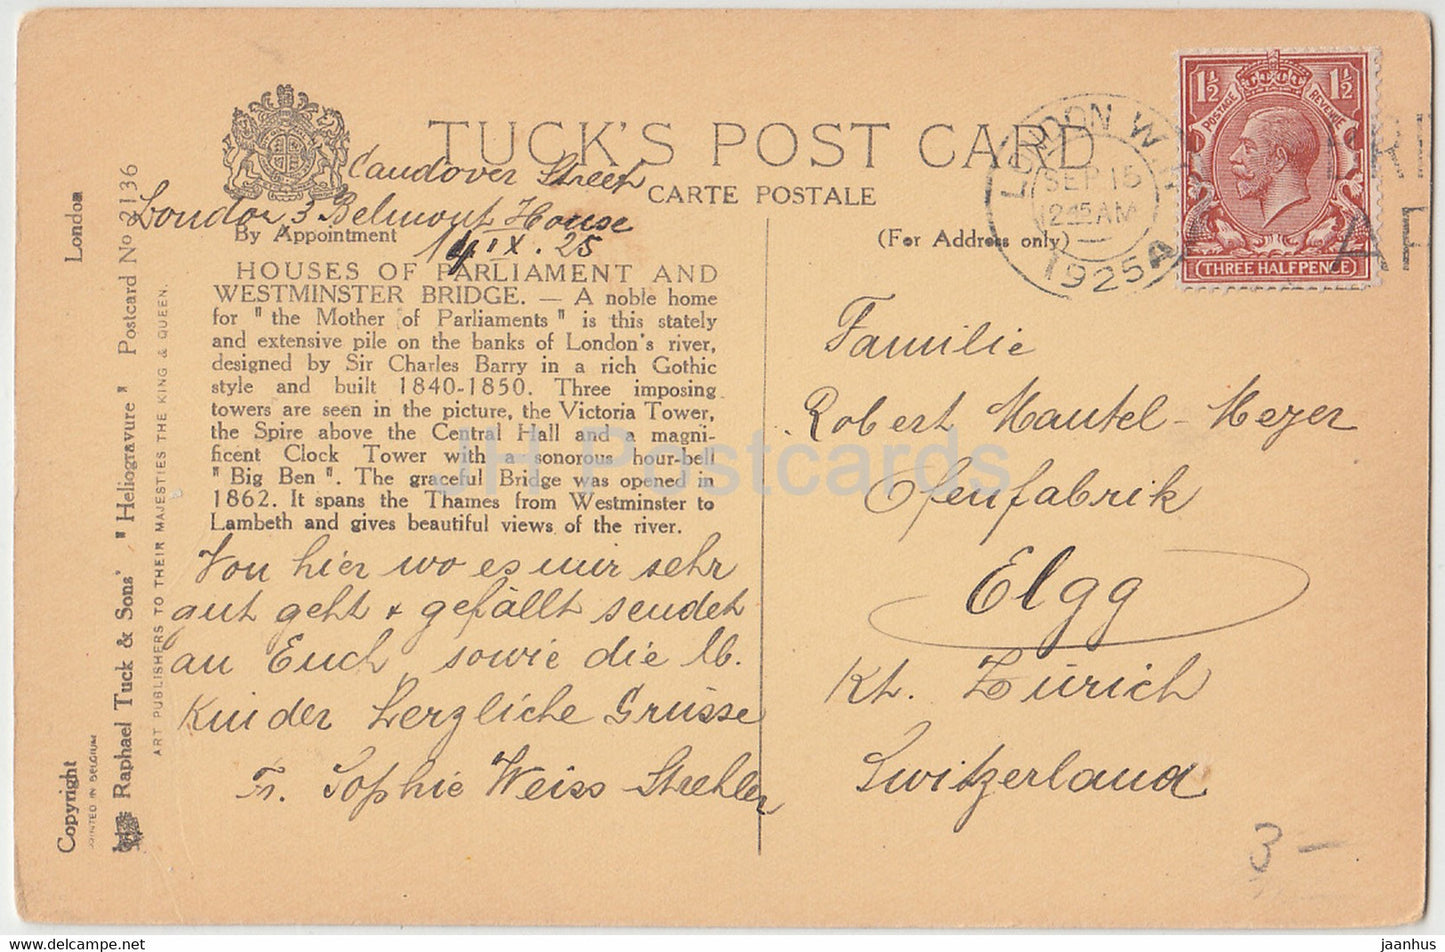 TUCK'S POST CARD
CARTE POSTALE
Candover Street
London 3 Belmont House
14 IX. 25
By Appointment
(For Address only)
HOUSES OF PARLIAMENT AND
WESTMINSTER BRIDGE. — A noble home
for "the Mother of Parliaments" is this stately
and extensive pile on the banks of London's river,
designed by Sir Charles Barry in a rich Gothic
style and built 1840-1850. Three imposing
towers are seen in the picture, the Victoria Tower,
the Spire above the Central Hall and a magni-
ficent Clock Tower with a sonorous hour-bell
"Big Ben". The graceful Bridge was opened in
1862. It spans the Thames from Westminster to
Lambeth and gives beautiful views of the river.
Von hier wo es mir sehr
gut geht + gefällt sendet
an Euch sowie die lb.
Kinder herzliche Grüsse
Fr. Sophie Weiss-Strehler
Familie
Robert Mantel-Meyer
Ofenfabrik
Elgg
Kt. Zürich
Switzerland
3 —
LONDON W.
SEP 15
12.45AM
1925
A
1½ 1½
POSTAGE REVENUE
THREE HALFPENCE
London
Raphael Tuck & Sons' "Heliogravure" Postcard No 2136
ART PUBLISHERS TO THEIR MAJESTIES THE KING & QUEEN.
Copyright
PRINTED IN BELGIUM
JH Postcards
www.delcampe.net
jaanhus